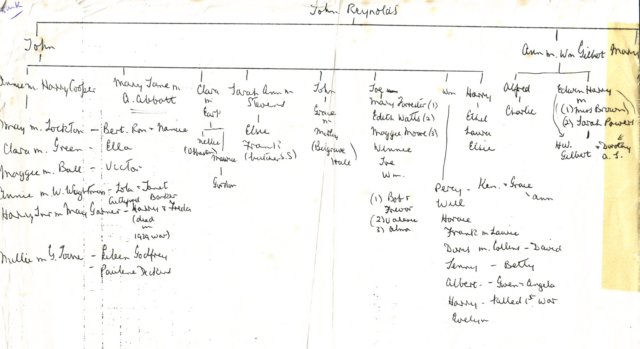 John Reynolds
John
Ann m. Wm Gilbert
Mary
Annie m. Harry Cooper
Mary Jane m
A. Abbott
Clara
m
East
Nellie
Maurice
Gordon
Sarah Ann m
Stevens
Elsie
Frank
John
m
(Belgrave
Hall)
Joe
Mary Forrester (1)
Edith Watts (2)
Maggie Moore (3)
Winnie
Joe
Wm.
(1) Bob &
Trevor
(2) Valerie
3) Alma
Wm
Harry
Ethel
Laura
Elsie
Alfred
Charlie
Edwin Harry
m
(1) (Miss Brown)
(2) Sarah Powers
H.W.
Gilbert
= Dorothy
May m. Lockton - Bert. Ron = Nancie
Clara m. Green - Ella
Maggie m. Ball - Victor
Annie m. W. Wightman - Lola = Janet
Harry Jnr m May Garner - Harry & Freda
(died
in
1939 war)
Millie m G. Towne - Eileen Godfrey
- Pauline Dickens
Percy - Ken. = Grace
Ann
Will
Horace
Frank m Laurie
Doris m. Collins - David
Jenny - Betty
Albert - Gwen = Angela
Harry - killed 1st war
Evelyn